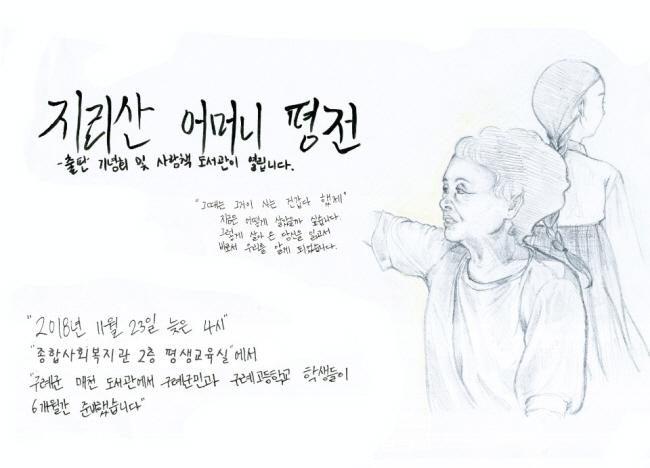 지리산 어머니 평전
-출판 기념회 및 사람책 도서관이 열립니다.
"그때는 그거이 사는 건갑다 했제"
지금은 어떻게 살았을까 싶습니다.
그렇게 살아 온 당신을 읽고서
비로서 우리를 알게 되었습니다.
"2018년 11월 23일 늦은 4시"
"종합사회복지관 2층 평생교육실"에서
"구례군 매천 도서관에서 구례군민과 구례고등학교 학생들이
6개월간 준비했습니다"